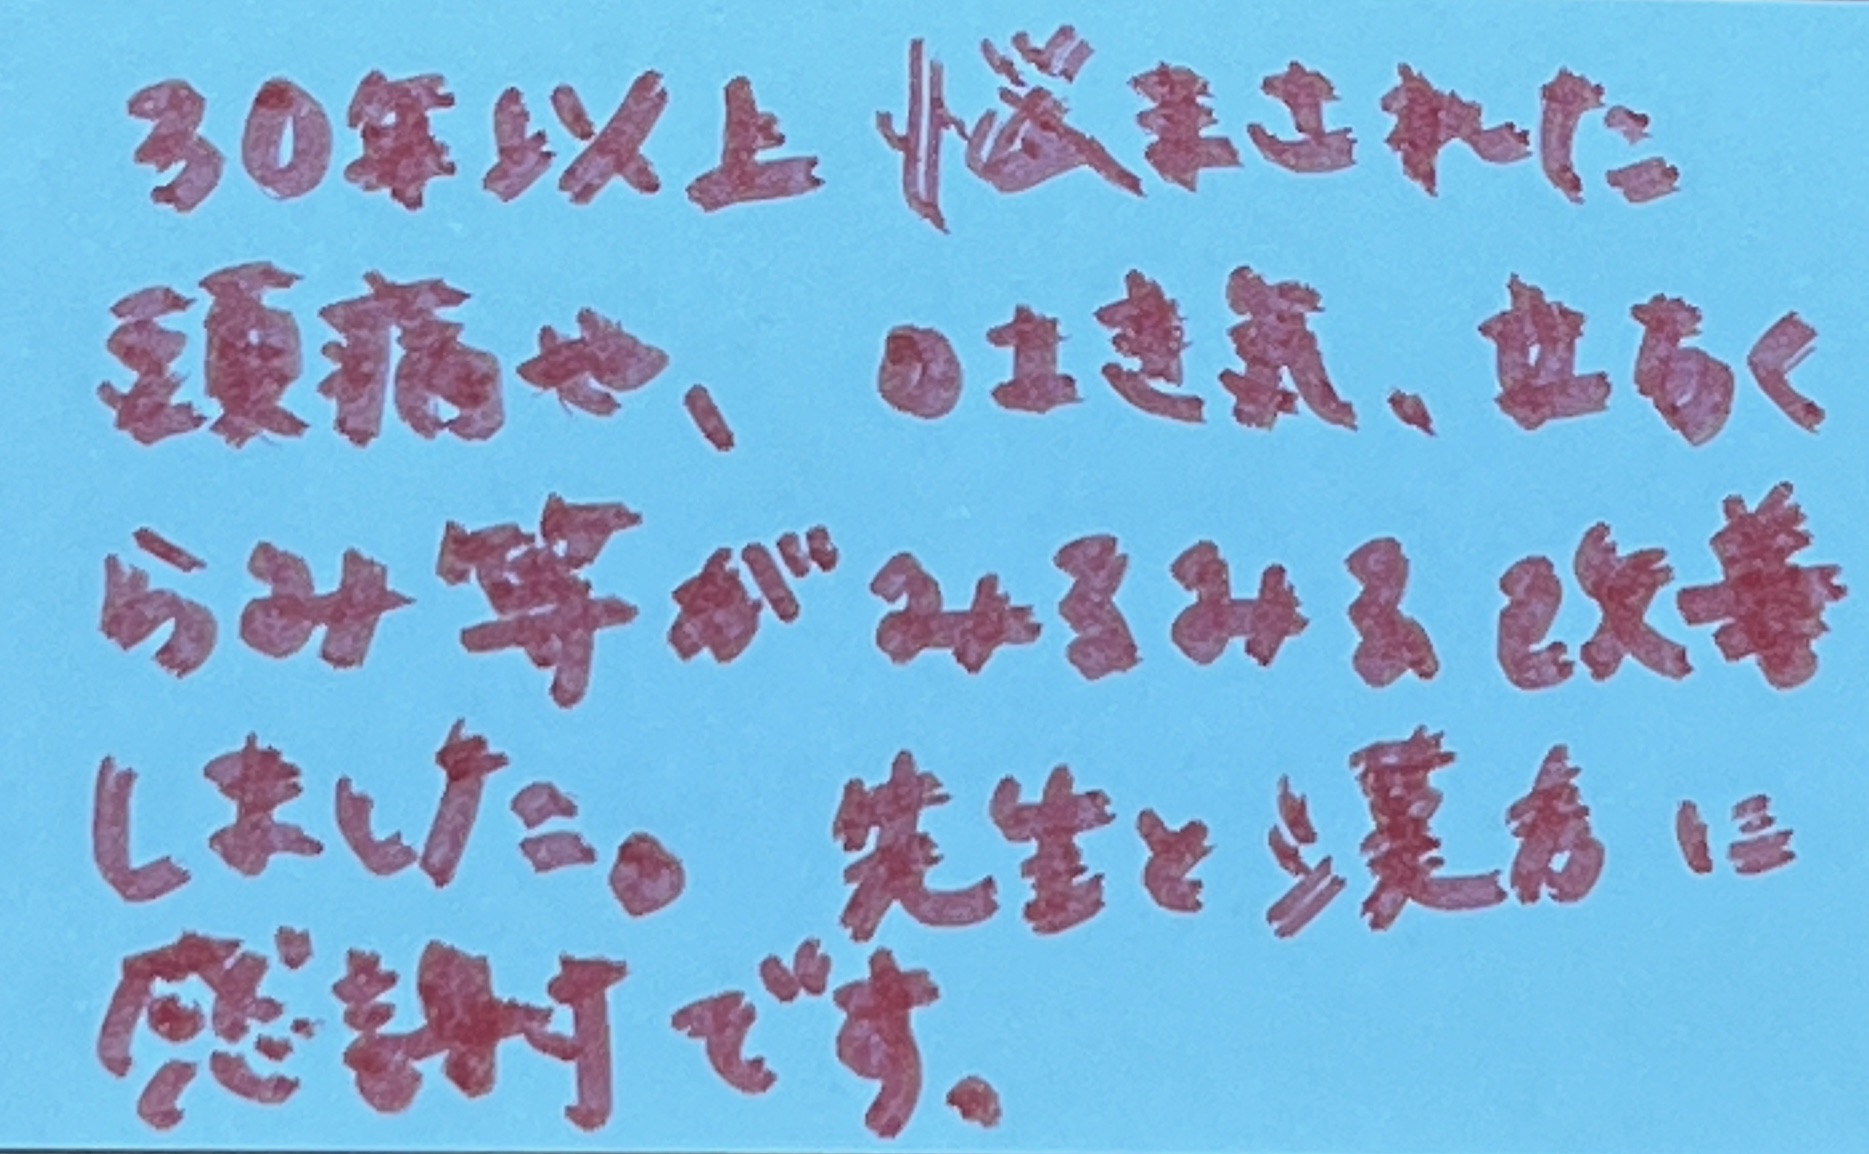 30年以上悩まされた
頭痛や、吐き気、立ちく
らみ等がみるみる改善
しました。先生と漢方に
感謝です.